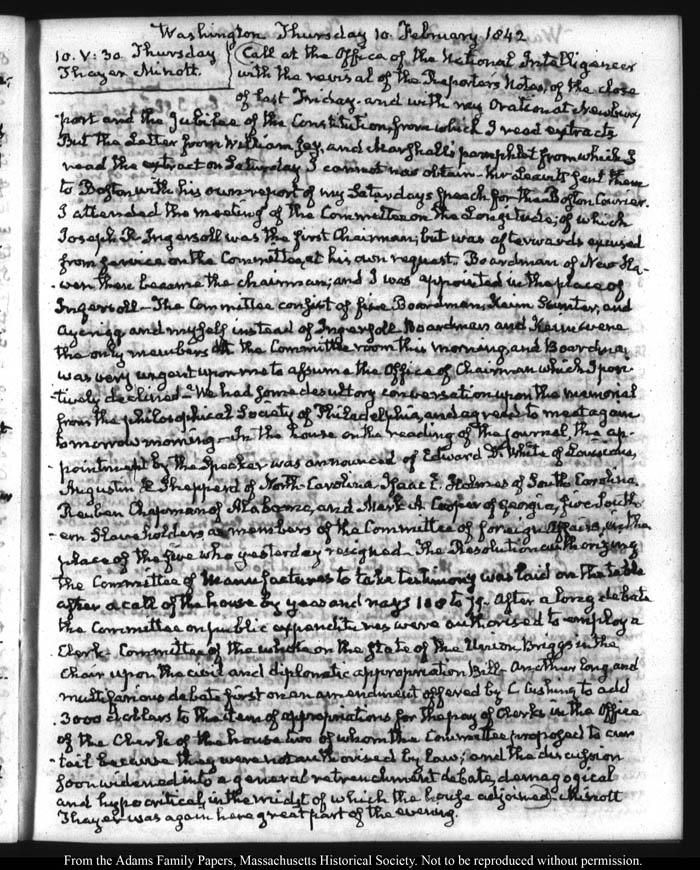 Washington Thursday 10. February 1842
10. V:30. Thursday
Thayer Minott.
Call at the Office of the National Intelligencer
with the revisal of the Reporter's Notes, of the close
of last Friday. and with my Oration at Newbury
port and the Jubilee of the Constitution, from which I read extracts
But the Letter from William and Marshall's pamphlet from which I
read the extract on Saturday I cannot now obtain. Mr Leavitt sent them
to Boston with his own report of my Saturdays speech for the Boston Courier.
I attended the meeting of the Committee on the Longitude; of which
Joseph R. Ingersoll was the first Chairman; but was afterwards excused
from service on the Committee, at his own request. Boardman of New Ha-
-ven then became the chairman; and I was appointed in the place of
Ingersoll. The Committee consist of five Boardman, Keim Hunter, and
Aycrigg and myself instead of Ingersoll. Boardman and Keim were
the only members at the Committee room this morning, and Boardman
was very urgent upon me to assume the Office of Chairman which I posi-
tively declined. We had some desultory conversation upon the memorial
from the philosophical Society of Philadelphia, and agreed to meet again
tomorrow morning. In the house on the reading of the journal, the ap-
-pointment by the Speaker was announced of Edward D. White of Louisiana,
Augustin H. Shepperd of North-Carolina, Isaac E. Holmes of South Carolina,
Reuben Chapman of Alabama, and Mark A. Cooper of Georgia, five South-
-ern Slave holders as members of the Committee of foreign Affairs, in the
place of the five who yesterday resigned. The Resolution authorizing
the Committee of Manufactures to take testimony was laid on the table
after a call of the house by yeas and nays to 79. After a long debate
the Committee on public expenditures were authorised to employ a
Clerk. Committee of the whole on the state of the Union, Briggs in the
Chair upon the civil and diplomatic appropriation Bill. Another long and
multifarious debate first on an amendment offered by C. Cushing to add
3000 dollars to the item of appropriations for the pay of Clerks in the Office
of the Clerk of the house two of whom the Committee proposed to cur-
-tail because they were not authorised by Law; and the discussion
soon widened into a general retrenchment debate, demagogical
and hypocritical, in the midst of which the house adjourned. Minott
Thayer was again here great part of the evening.
From the Adams Family Papers, Massachusetts Historical Society. Not to be reproduced without permission.